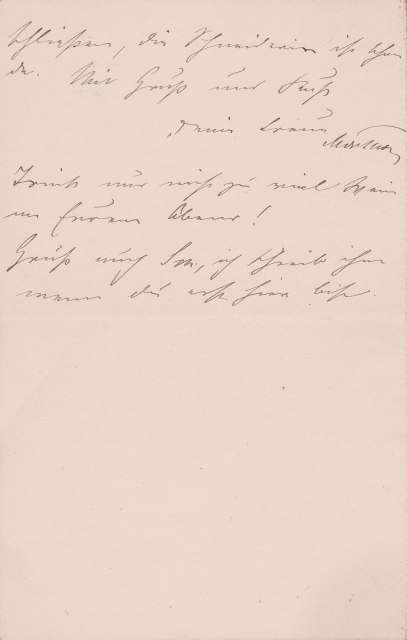 schließen, die Schneiderin ist schon
da. Mit Gruß und Kuß
deine treue
Trink nur nicht zu viel Wein
an Eurem Abend!
Gruß auch, ich schreib ihm
wenn du erst hier bist.